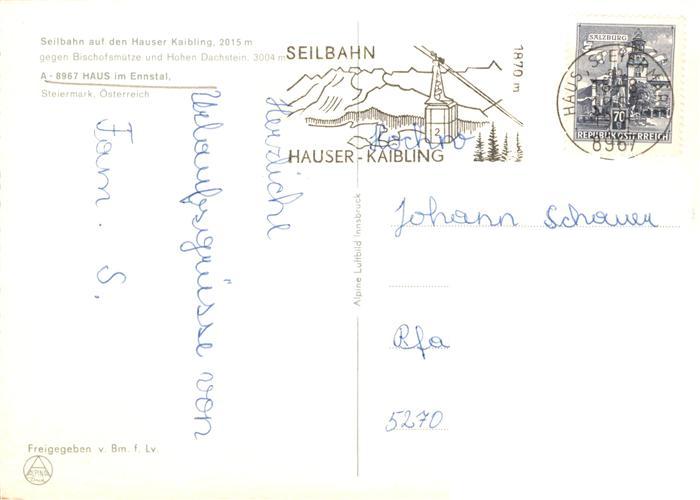 Seilbahn auf den Hauser Kaibling, 2015 m
gegen Bischofsmütze und Hohen Dachstein, 3004 m
A - 8967 HAUS im Ennstal,
Steiermark, Österreich
Herzliche
Urlaubsgrüsse von
Fam. S.
Freigegeben v. Bm. f. Lv.
Alpine Luftbild Innsbruck
SEILBAHN
1870 m
2
HAUSER-KAIBLING
SALZBURG
70
REPUBLIK ÖSTERREICH
HAUS, STEIERMARK
8967
Johann Schauer
Rfa
5270